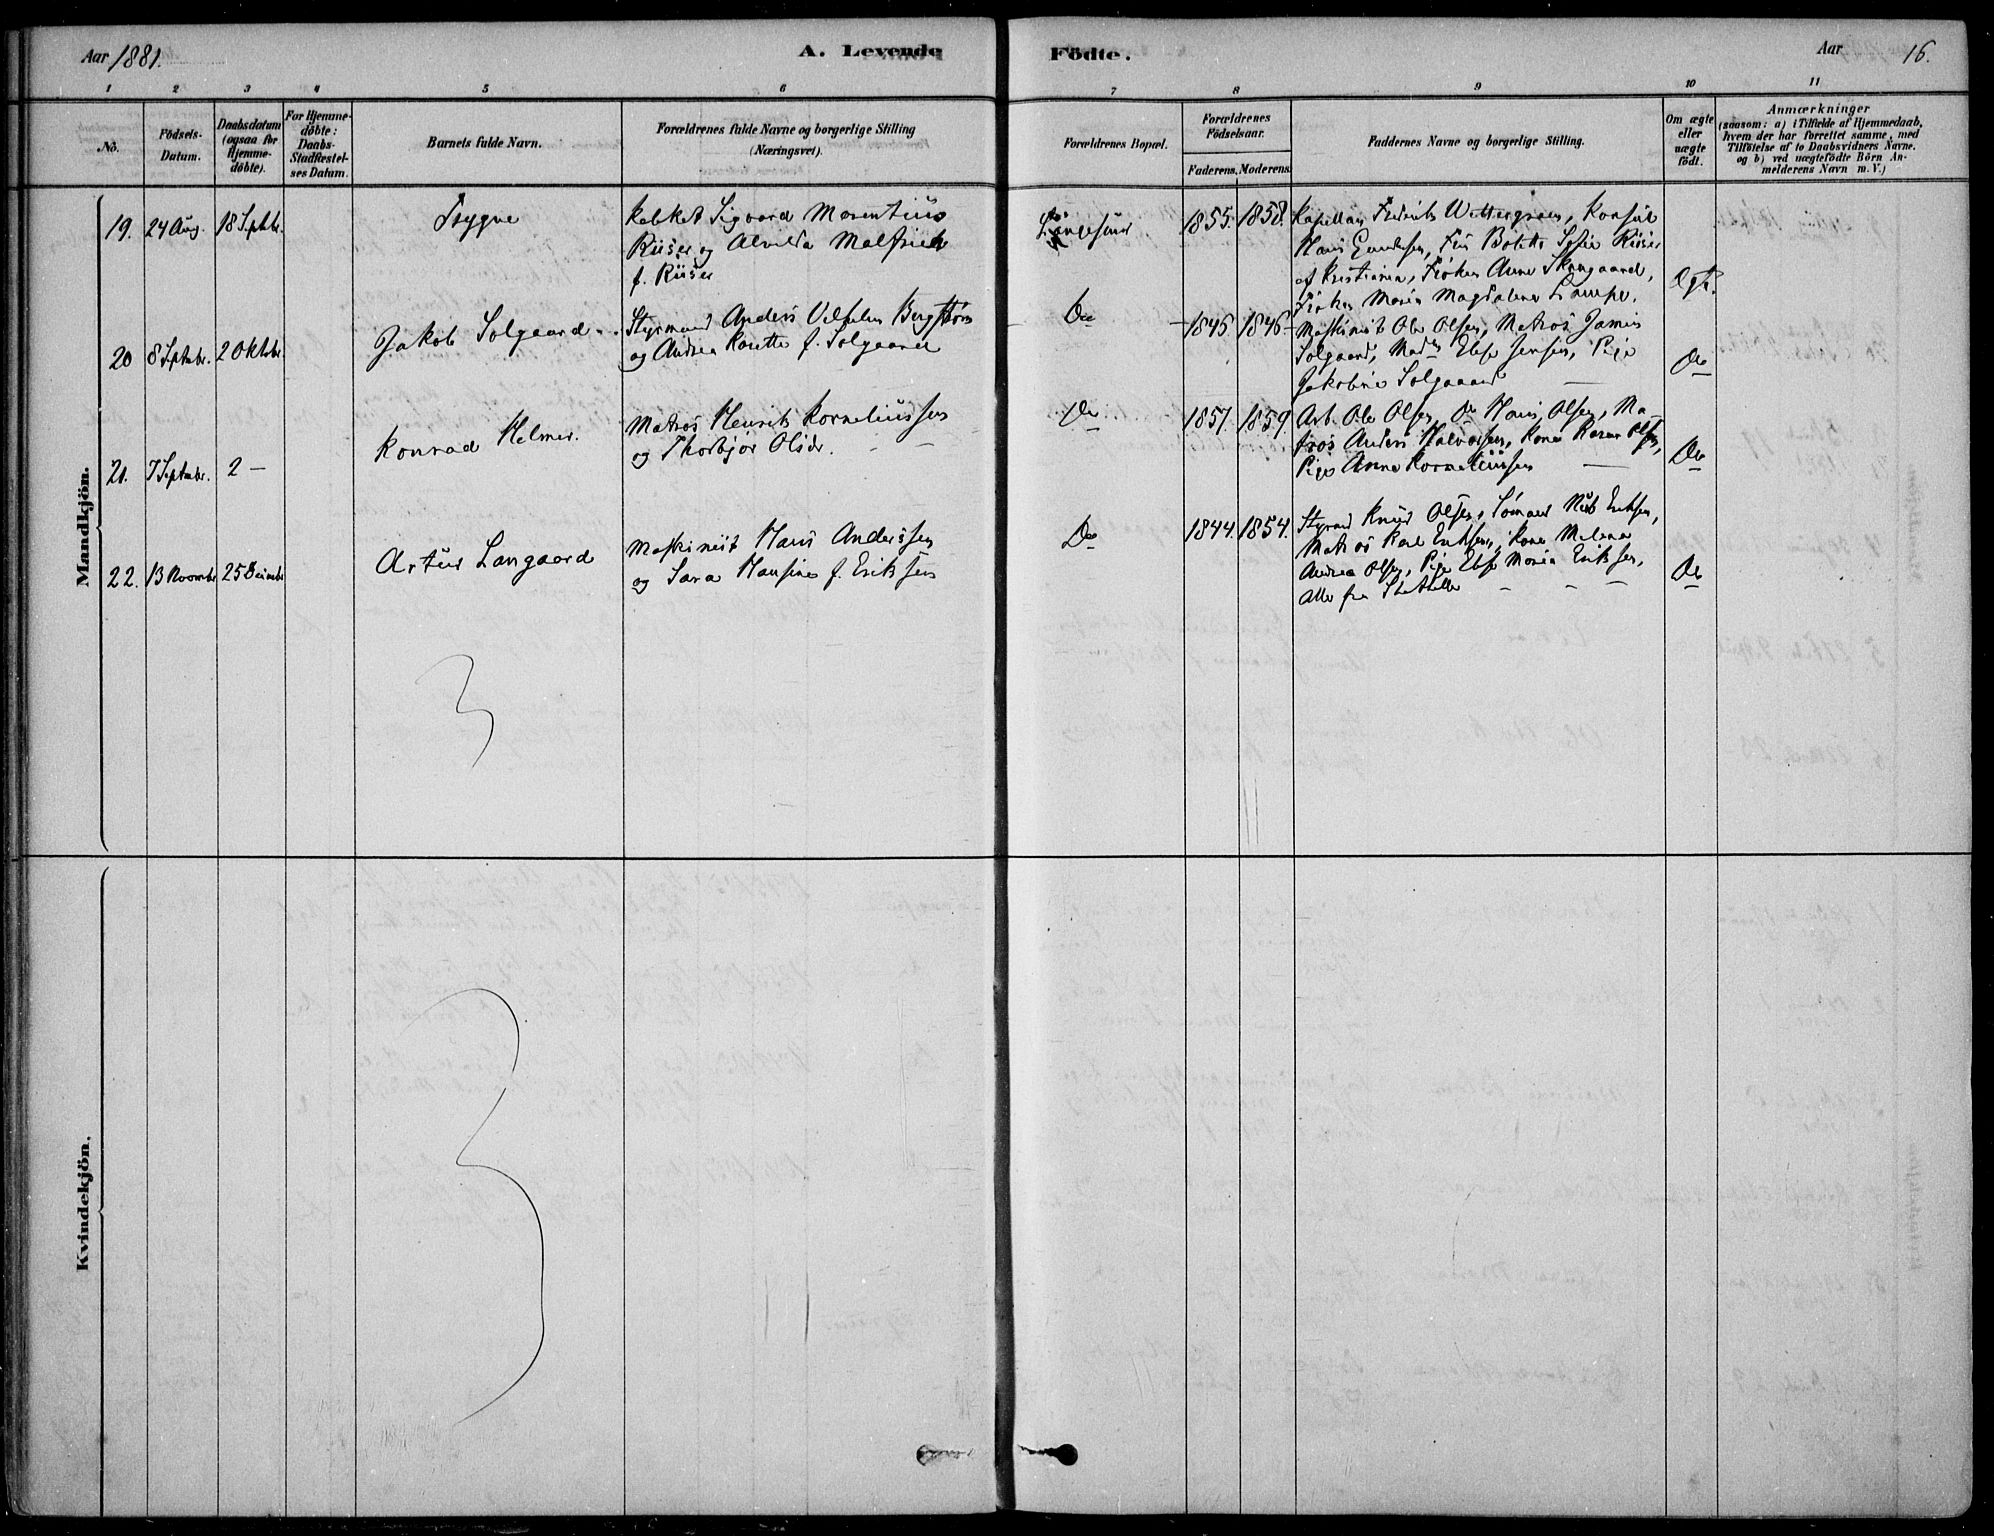 Aar 1881.
A. Levende
Födte.
Aar
16.
1 2 3 4 5 6 7 8 9 10 11
No.
Födsels-
Datum.
Daabsdatum
(ogsaa for
Hjemme-
döbte).
For Hjemme-
döbte:
Daabs-
Stadfæstel-
ses Datum.
Barnets fulde Navn.
Forældrenes fulde Navne og borgerlige Stilling
(Næringsvei).
Forældrenes Bopæl.
Forældrenes
Födselsaar.
Faderens. Moderens.
Faddernes Navne og borgerlige Stilling.
Om ægte
eller
uægte
födt.
Anmærkninger
(saasom: a) i Tilfælde af Hjemmedaab,
hvem der har forrettet samme, med
Tilföielse af to Daabsvidners Navne.
og b) ved uægtefödte Börn An-
melderens Navn m. V.)
Mandkjön.
19. 24 Aug. 18 Septbr.
Trygve
Sigvard Marentius
Riiser og Alvilda Malfride
f. Riiser
Langesund
1855. 1858.
Kapellan Fredrik Wettergreen, Konsul
Hans Gundersen, Fru Bolette Sofie Riiser
af Kristiania, Frøken Anna Skougaard,
Frøken Maria Magdalena
Ægte.
20 8 Septmbr. 2 Oktobr.
Jakob Solgaard
Styrmand Anders Vilhelm Bergstrøm
og Andrea Rosette f. Solgaard
Do
1845 1846
Maskinist Ole Olsen, Matros James
Solgaard, Madm Else Jensen, Pige
Jakobine Solgaard
Do
21. 7 Septmbr. 2 —
Konrad Helmer.
Matros Henrik Korneliussen
og Thorbjør Olsdr.
Do
1857. 1859.
Arb. Ole Olsen, do Hans Olsen, Ma-
tros Anders Halvorsen, Kone Karen Olsen,
Pige Anne Korneliussen
Do
22. 13 Novmbr 25 Decmbr
Artur Langaard
Maskinist Hans Anderssen
og Sara Hansine f. Erikssen
Do
1844. 1854.
Styrmd Knud Olsen, Sømand Nils Eriksen,
Matros Karl Eriksen, Kone Helena
Andrea Olsen, Pige Else Maria Eriksen,
alle fra Stathelle
Do
Kvindekjön.